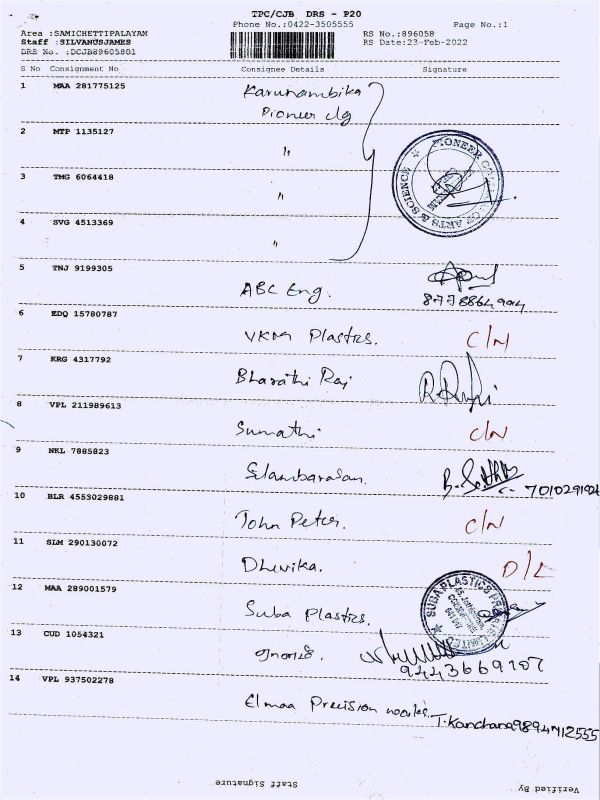 TPC/CJB DRS - P20
Phone No.:0422-3505555 Page No.:1
Area :SAMICHETTIPALAYAM RS No.:896058
Staff :SILVANUSJAMES RS Date:23-Feb-2022
DRS No. :DCJB89605801
S No Consignment No Consignee Details Signature
1 MAA 281775125 Karunambika
Pioneer clg
2 MTP 1135127 "
PIONEER COLLEGE OF ARTS & SCIENCE
3 TMG 6064418 "
4 SVG 4513369 "
5 TNJ 9199305 ABC Eng.
6 EDQ 15780787 VKM Plastics. C/N
7 KRG 4317792 Bharathi Raj
8 VPL 211989613 Sumathi C/N
9 NKL 7885823 Elambarasan.
10 BLR 4553029881 John Peter. C/N
11 SLM 290130072 Dhevika. D/L
12 MAA 289001579 Suba Plastics.
SUBA PLASTICS PRIVATE LIMITED
13 CUD 1054321
9443669107
14 VPL 937502278 Elmaa Precision T.Kanchana
Staff Signature Verified By